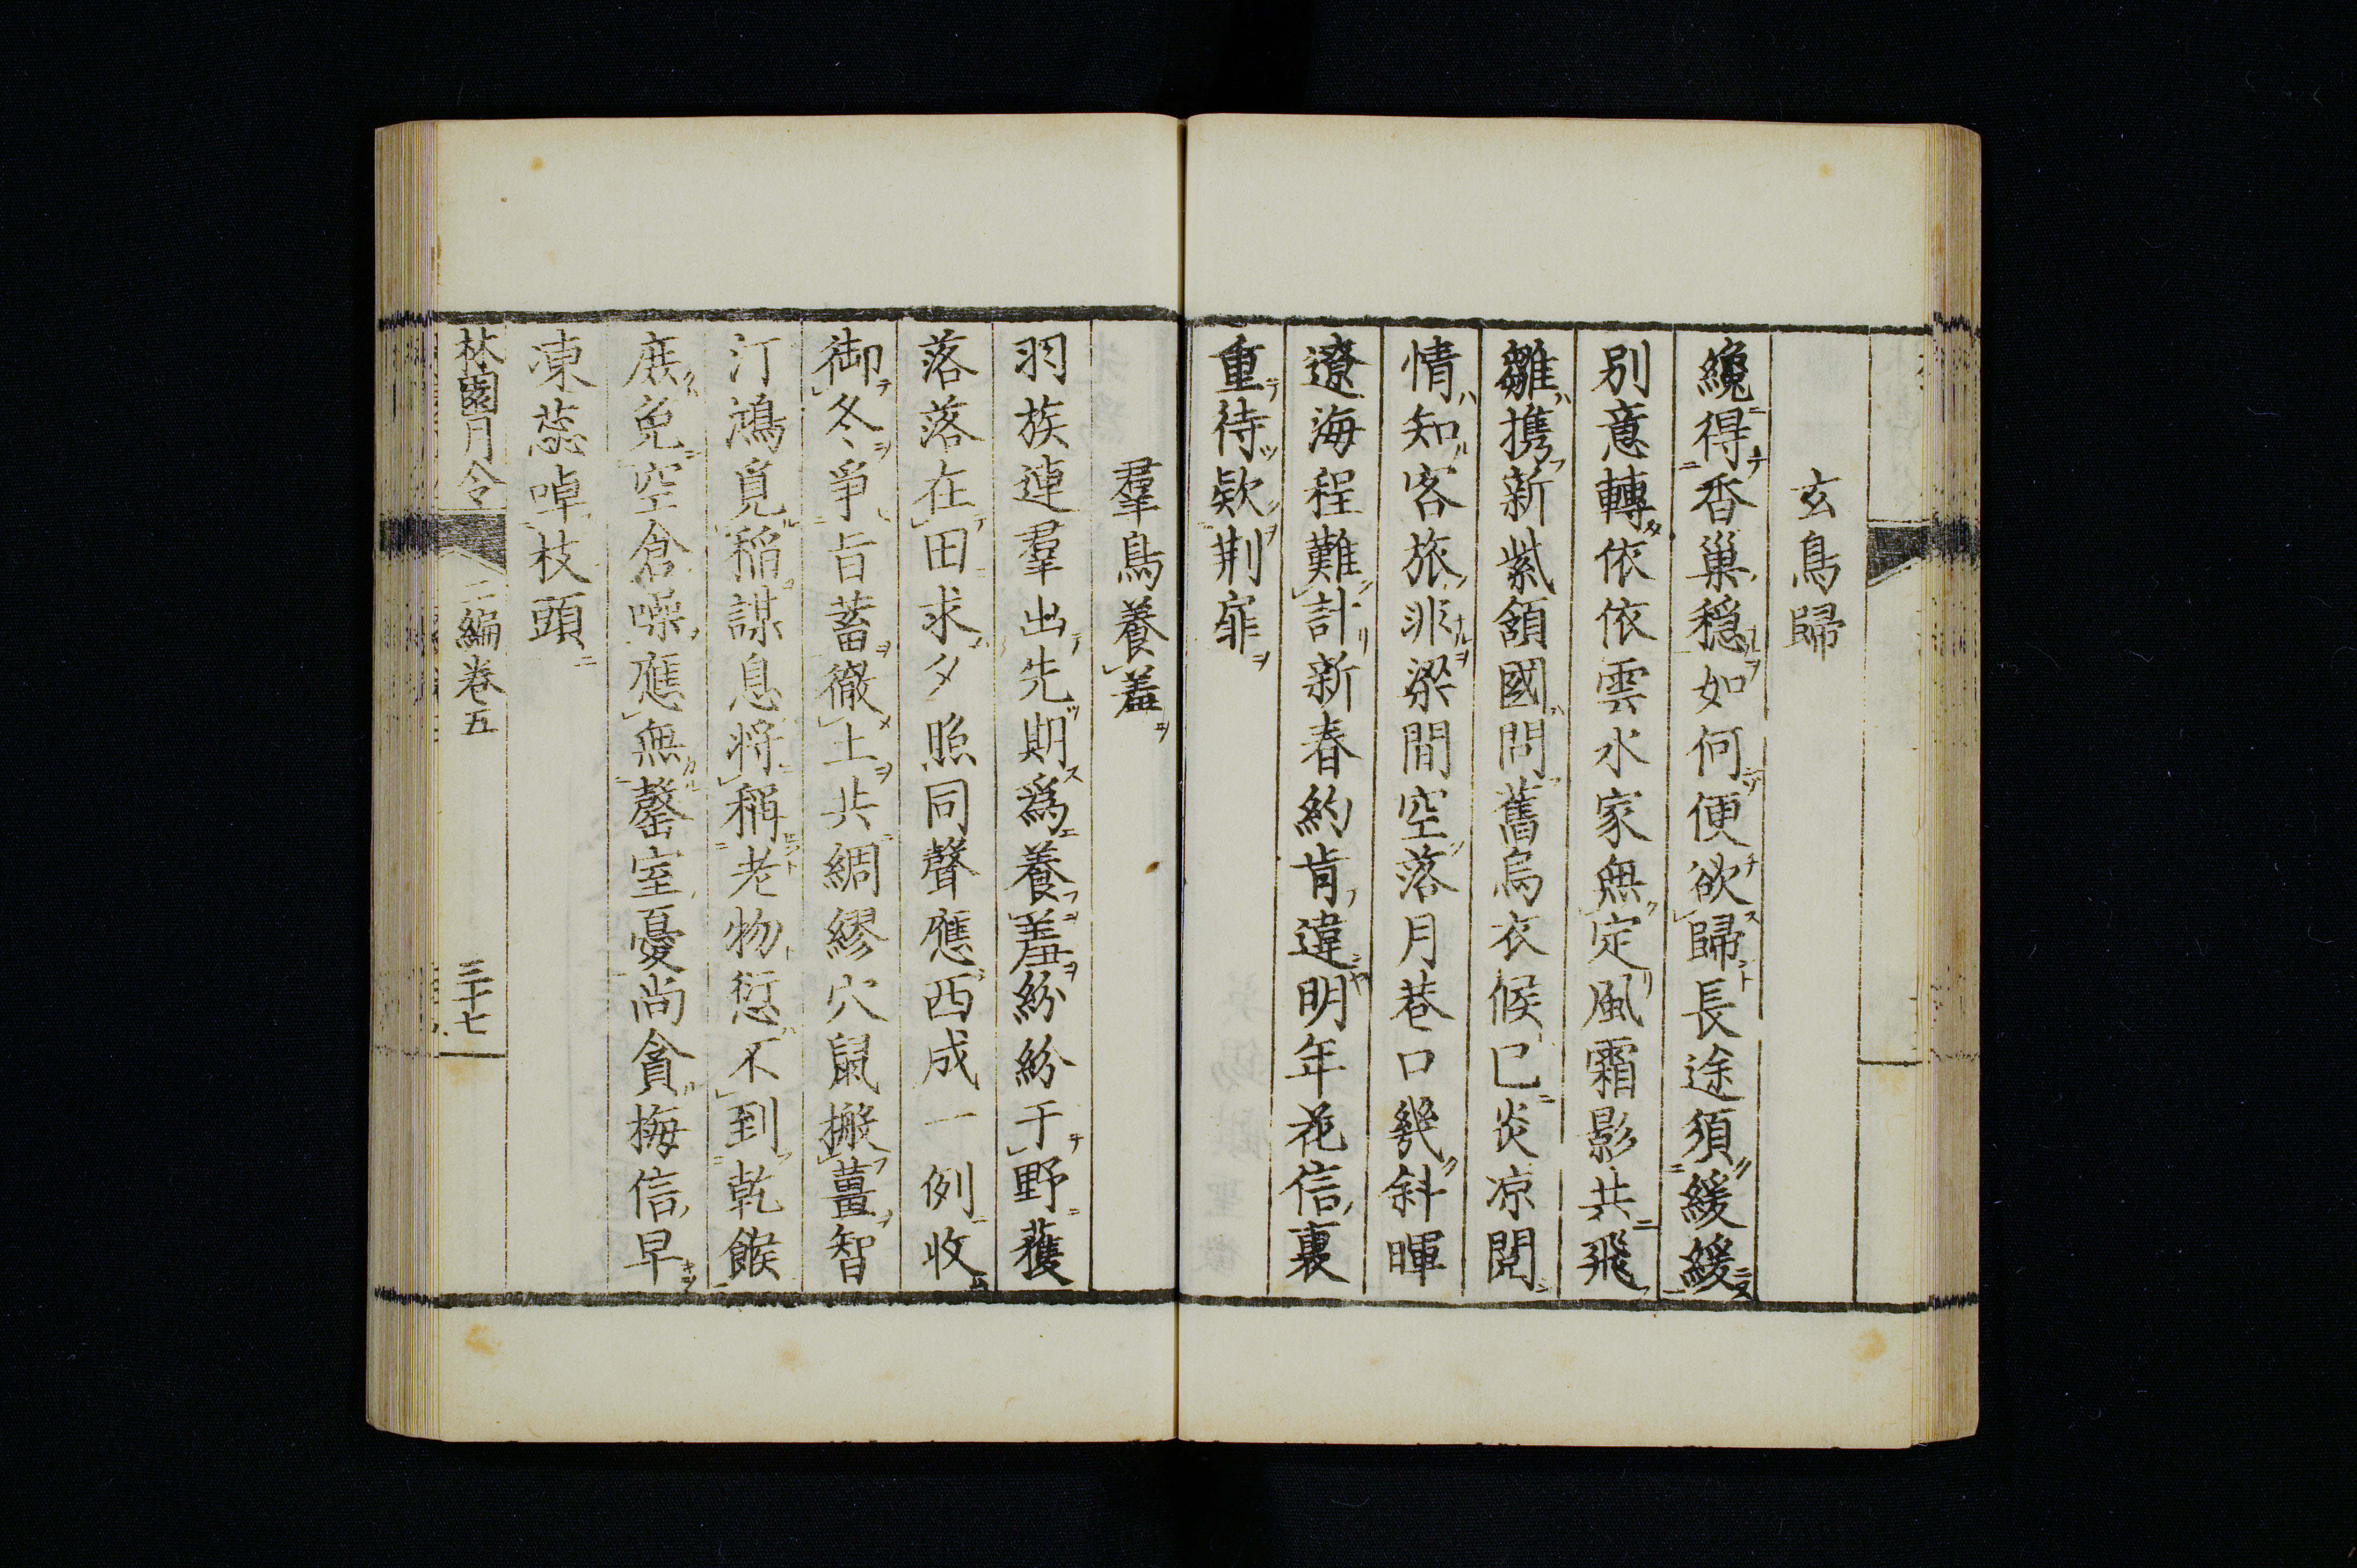 玄鳥歸
纔得香巢穩如何便欲歸長途須緩緩
別意轉依依雲水家無定風霜影共飛
雛携新紫頷國問舊烏衣候已炎凉閱
情知客旅非梁間空落月巷口幾斜暉
遼海程難計新春約肯違明年花信裏
重待欵荆扉
羣鳥養羞
羽族連羣出先期爲養羞紛紛于野蒦
落落在田求夕照同聲應西成一例收
御冬爭旨蓄徹土共綢繆穴鼠搬薑智
汀鴻覓稻謀息將稱老物愆不到乾餱
庶免空倉噪應無罄室憂尚貪梅信早
凍蕊啅枝頭
林園月令
二編卷五
三十七